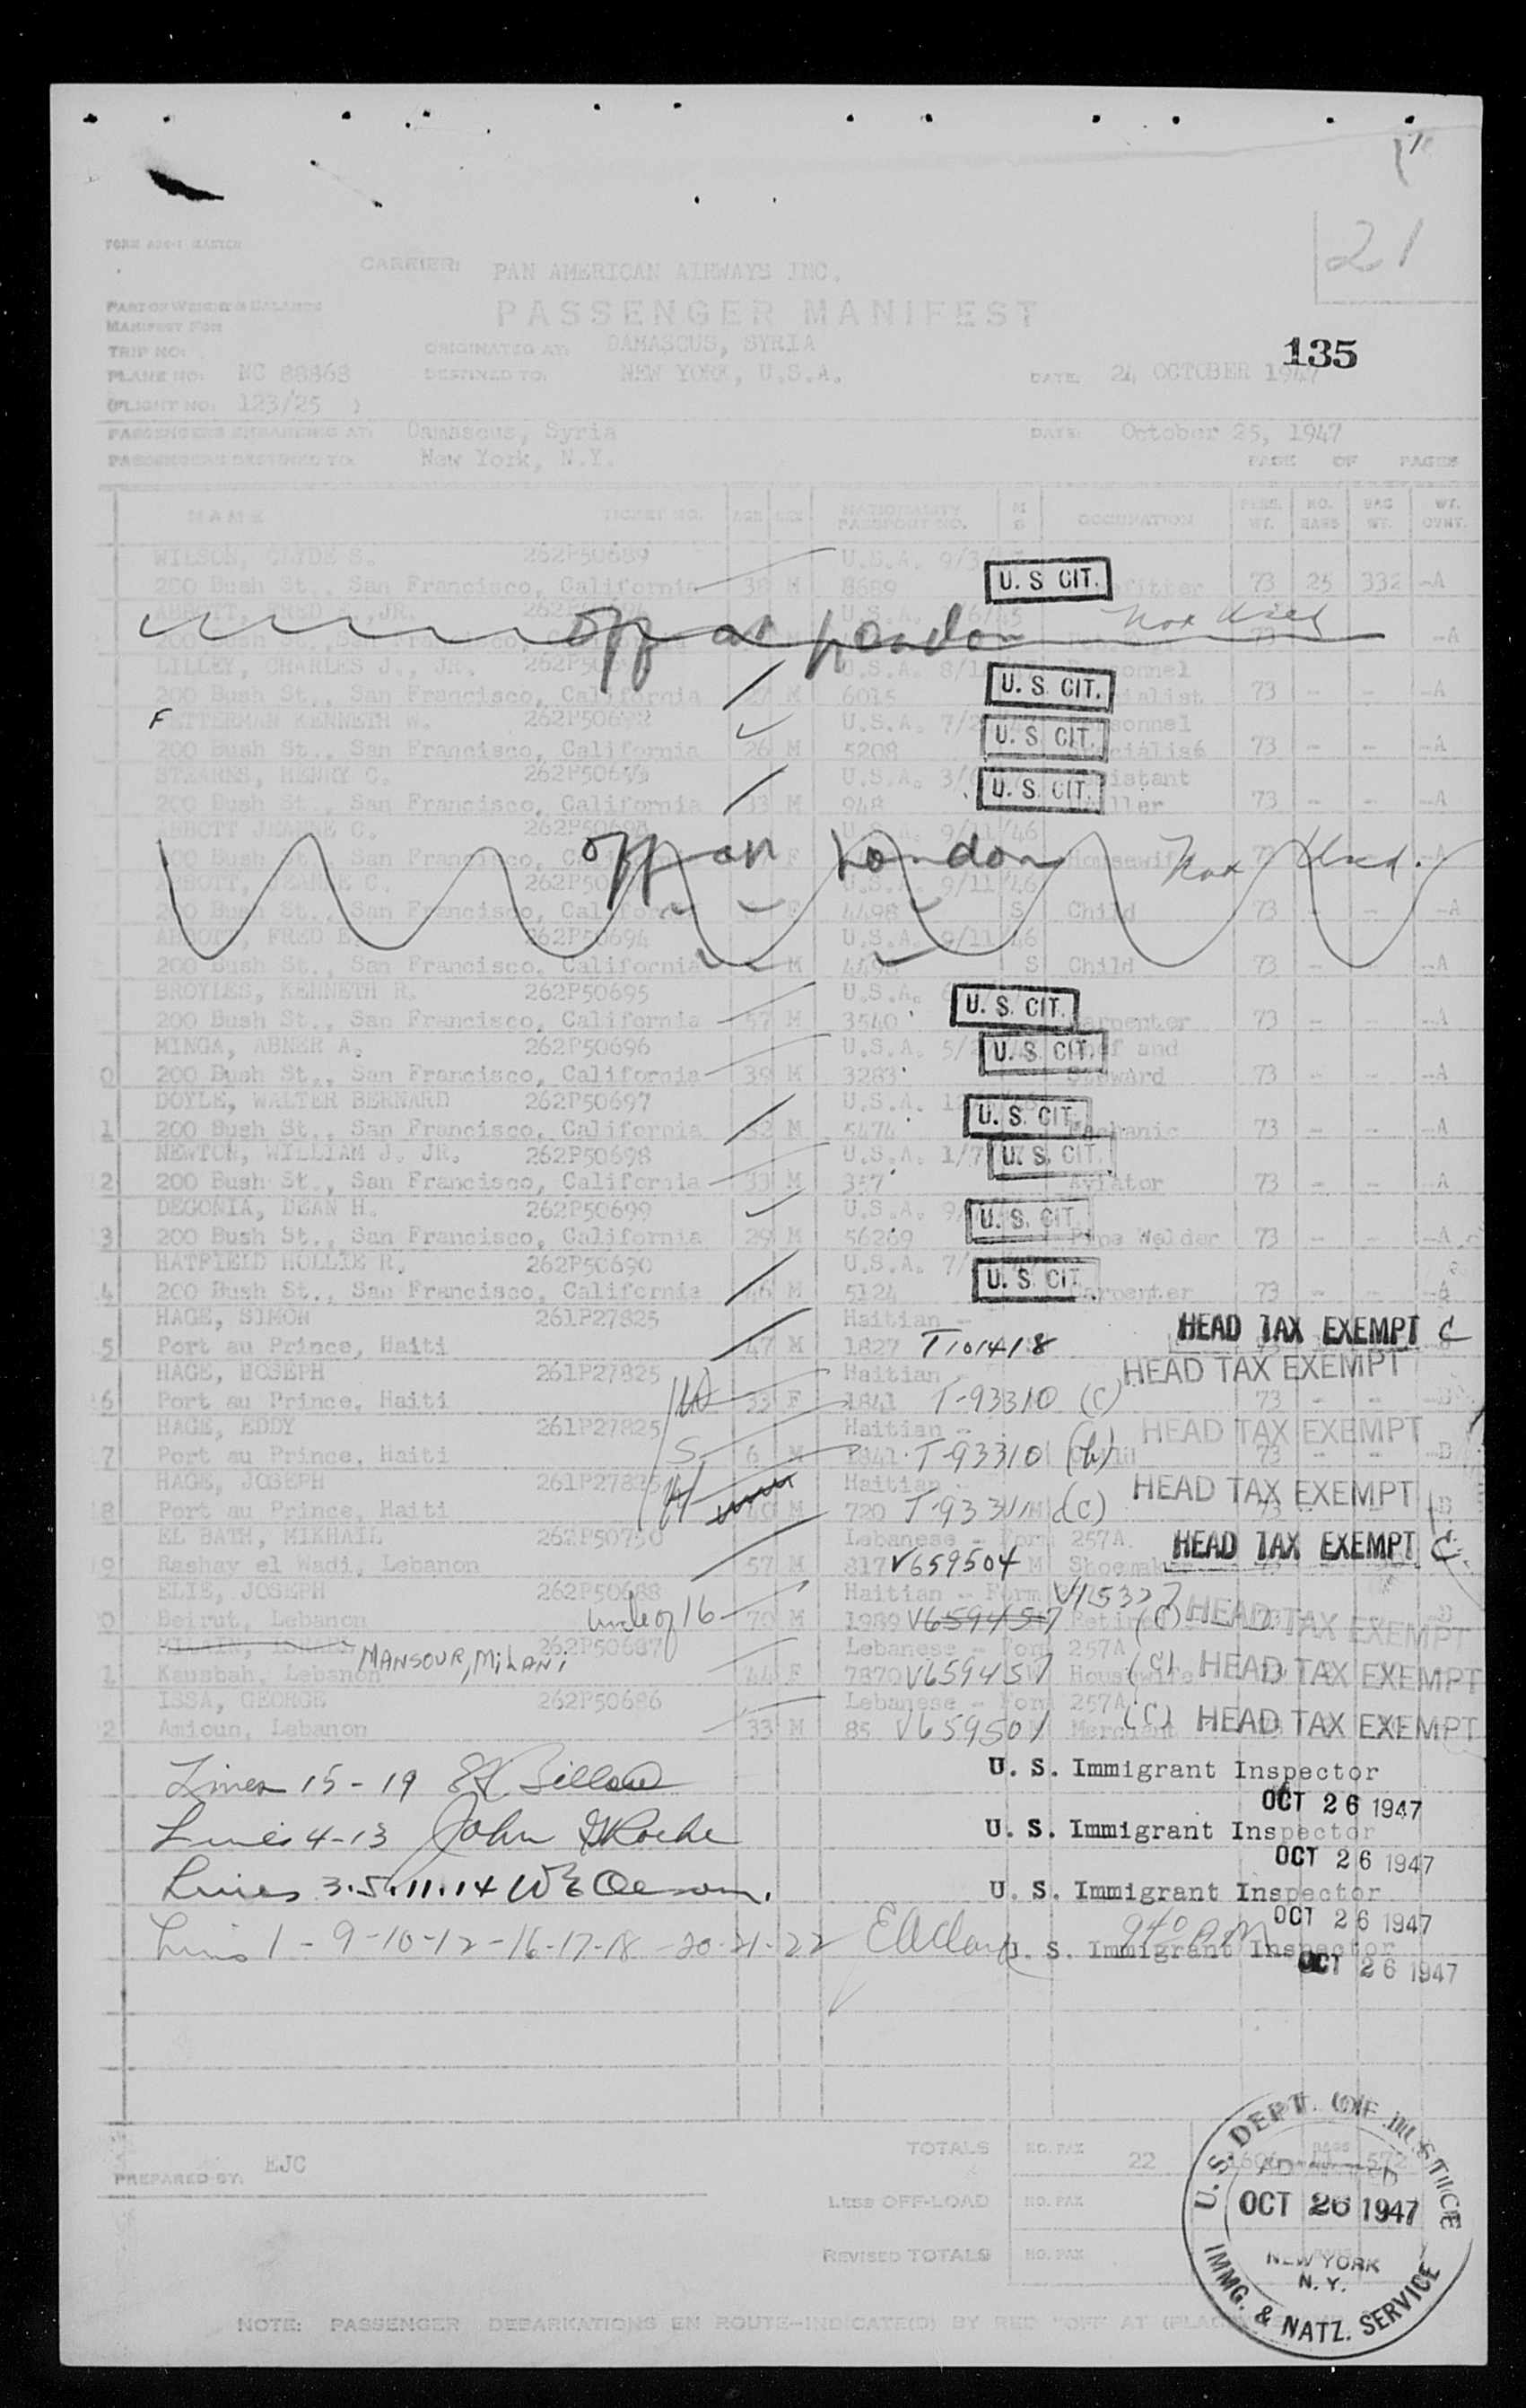 21
CARRIER: PAN AMERICAN AIRWAYS INC.
PASSENGER MANIFEST
135
PART OF WEIGHT & BALANCE
MANIFEST FOR
TRIP NO: ORIGINATED AT: DAMASCUS, SYRIA
PLANE NO: NC 88868 DESTINED TO: NEW YORK, U.S.A. DATE: 24 OCTOBER 1947
(FLIGHT NO: 123/25 )
PASSENGERS EMBARKED AT: Damascus, Syria DATE: October 25, 1947
PASSENGERS DESTINED TO: New York, N.Y. PAGE OF PAGES
NAME TICKET NO. AGE SEX NATIONALITY PASSPORT NO. M S OCCUPATION PERS. WT. NO. BAGS BAG WT. WT. OVHT.
WILSON, CLYDE S. 262P50689 U.S.A. 9/3/
200 Bush St., San Francisco, California 38 M 8689 U. S CIT. fitter 73 25 332 -A
ABBOTT, FRED E., JR. U.S.A.
off at London Not Used 73 -A
LILLEY, CHARLES J., JR. U.S.A. 8/1 Personnel
200 Bush St., San Francisco, California M 6015 U. S. CIT. 73 - - -A
FETTERMAN KENNETH W. 262P50692 U.S.A. 7/2
200 Bush St., San Francisco, California 26 M 5208 U. S CIT. 73 - - -A
STEARNS, HENRY C. U.S.A. 3/ Assistant
200 Bush St., San Francisco, California 33 M 948 U. S. CIT. 73 - - -A
ABBOTT JEANNE C. U.S.A. 9/11/46
200 Bush St., San Francisco, California F Housewife -A
off at London Not Used.
ABBOTT, JEANNE C. U.S.A. 9/11/46
200 Bush St., San Francisco, California F 4498 S Child 73 - - -A
ABBOTT, FRED E. 262P50694 U.S.A. 9/11/46
200 Bush St., San Francisco, California M S Child 73 - - -A
BROYLES, KENNETH R. 262P50695 U.S.A.
200 Bush St., San Francisco, California 57 M 3540 U. S. CIT. Carpenter 73 - - -A
MINGA, ABNER A. 262P50696 U.S.A. 5/2 Chef and
10 200 Bush St., San Francisco, California 39 M 3283 U. S CIT. Steward 73 - - -A
DOYLE, WALTER BERNARD 262P50697 U.S.A.
11 200 Bush St., San Francisco, California 32 M 5474 U. S. CIT. Mechanic 73 - - -A
NEWTON, WILLIAM J. JR. 262P50698 U.S.A. 1/7
12 200 Bush St., San Francisco, California 33 M 357 U. S. CIT. Aviator 73 - - -A
DEGONIA, DEAN H. 262P50699 U.S.A. 9/
13 200 Bush St., San Francisco, California 29 M 56269 U. S. CIT. Pipe Welder 73 - - -A
HATFIELD HOLLIE R. 262P50690 U.S.A. 7/
14 200 Bush St., San Francisco, California 46 M 5124 U. S CIT. Carpenter 73 - - -A
HAGE, SIMON 261P27825 Haitian -
15 Port au Prince, Haiti 47 M 1827 T101418 HEAD TAX EXEMPT C
HAGE, HOSEPH 261P27825 Haitian HEAD TAX EXEMPT
16 Port au Prince, Haiti W 33 F 1841 T-93310 (C) 73 - - -B
HAGE, EDDY 261P27825 Haitian - HEAD TAX EXEMPT
17 Port au Prince, Haiti S 6 M 1841 T-93310 (b) 73 - - -B
HAGE, JOSEPH 261P27825 Haitian HEAD TAX EXEMPT
18 Port au Prince, Haiti H 40 M 720 (C)
EL BATH, MIKHAIL 262P50750 Lebanese - Form 257A
19 Rashay el Wadi, Lebanon 57 M 817 V659504 M Shoemaker HEAD TAX EXEMPT C
ELIE, JOSEPH 262P50688 Haitian - Form
20 Beirut, Lebanon Uncle of 16 70 M 1989 V659457 Retired (C) HEAD TAX EXEMPT
262P50687 Lebanese - Form 257A
MANSOUR, MiLANi
21 Kausbah, Lebanon 44 F 7870 V659457 Housewife (C) HEAD TAX EXEMPT
ISSA, GEORGE 262P50686 Lebanese - Form 257A
22 Amioun, Lebanon 33 M 85 V659501 Merchant (C) HEAD TAX EXEMPT
Lines 15-19 U. S. Immigrant Inspector
OCT 26 1947
Lines 4-13 John Roche U. S. Immigrant Inspector
OCT 26 1947
Lines 3.5.11.14 U. S. Immigrant Inspector
OCT 26 1947
Lines 1-9-10-12-16-17-18-20-21-22 U. S. Immigrant Inspector
OCT 26 1947
TOTALS NO. PAX 22
PREPARED BY: EJC
LESS OFF-LOAD NO. PAX
REVISED TOTALS NO. PAX
U.S. DEPT. OF JUSTICE
OCT 26 1947
NEW YORK
N.Y.
IMMG. & NATZ. SERVICE
NOTE: PASSENGER DEBARKATIONS EN ROUTE-INDICATE(D) BY RED "OFF AT